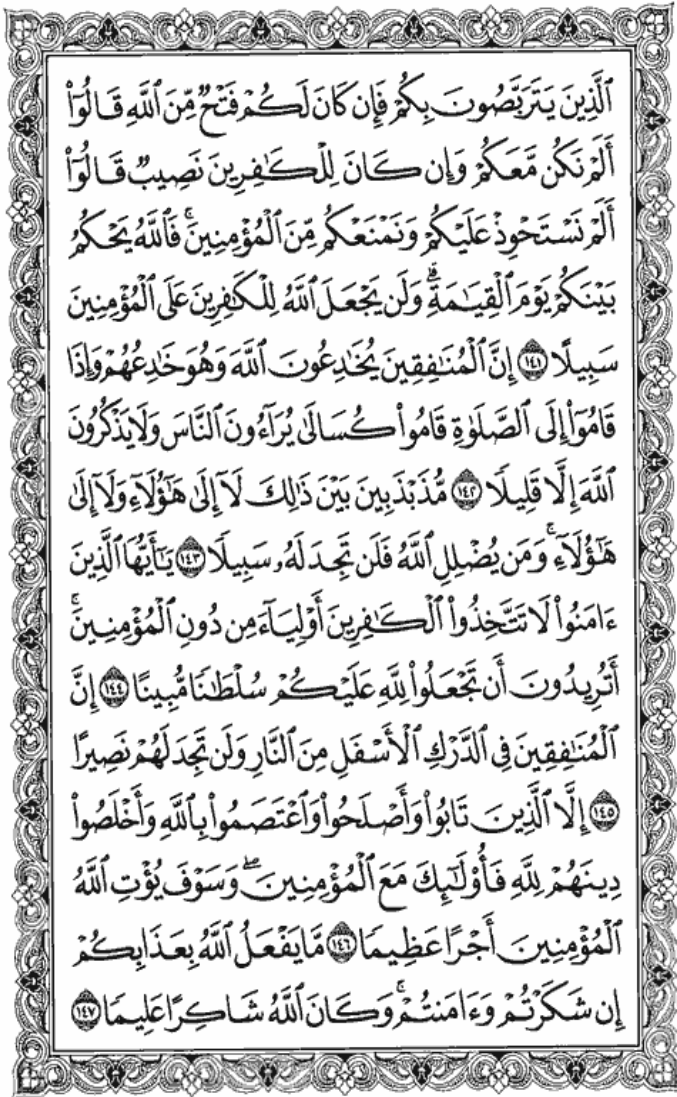 ٱلَّذِينَ يَتَرَبَّصُونَ بِكُمْ فَإِن كَانَ لَكُمْ فَتْحٌ مِّنَ ٱللَّهِ قَالُوٓا۟
أَلَمْ نَكُن مَّعَكُمْ وَإِن كَانَ لِلْكَـٰفِرِينَ نَصِيبٌ قَالُوٓا۟
أَلَمْ نَسْتَحْوِذْ عَلَيْكُمْ وَنَمْنَعْكُم مِّنَ ٱلْمُؤْمِنِينَ ۚ فَٱللَّهُ يَحْكُمُ
بَيْنَكُمْ يَوْمَ ٱلْقِيَـٰمَةِ ۗ وَلَن يَجْعَلَ ٱللَّهُ لِلْكَـٰفِرِينَ عَلَى ٱلْمُؤْمِنِينَ
سَبِيلًا ١٤١ إِنَّ ٱلْمُنَـٰفِقِينَ يُخَـٰدِعُونَ ٱللَّهَ وَهُوَ خَـٰدِعُهُمْ وَإِذَا
قَامُوٓا۟ إِلَى ٱلصَّلَوٰةِ قَامُوا۟ كُسَالَىٰ يُرَآءُونَ ٱلنَّاسَ وَلَا يَذْكُرُونَ
ٱللَّهَ إِلَّا قَلِيلًا ١٤٢ مُّذَبْذَبِينَ بَيْنَ ذَٰلِكَ لَآ إِلَىٰ هَـٰٓؤُلَآءِ وَلَآ إِلَىٰ
هَـٰٓؤُلَآءِ ۚ وَمَن يُضْلِلِ ٱللَّهُ فَلَن تَجِدَ لَهُۥ سَبِيلًا ١٤٣ يَـٰٓأَيُّهَا ٱلَّذِينَ
ءَامَنُوا۟ لَا تَتَّخِذُوا۟ ٱلْكَـٰفِرِينَ أَوْلِيَآءَ مِن دُونِ ٱلْمُؤْمِنِينَ ۚ
أَتُرِيدُونَ أَن تَجْعَلُوا۟ لِلَّهِ عَلَيْكُمْ سُلْطَـٰنًا مُّبِينًا ١٤٤ إِنَّ
ٱلْمُنَـٰفِقِينَ فِى ٱلدَّرْكِ ٱلْأَسْفَلِ مِنَ ٱلنَّارِ وَلَن تَجِدَ لَهُمْ نَصِيرًا
١٤٥ إِلَّا ٱلَّذِينَ تَابُوا۟ وَأَصْلَحُوا۟ وَٱعْتَصَمُوا۟ بِٱللَّهِ وَأَخْلَصُوا۟
دِينَهُمْ لِلَّهِ فَأُو۟لَـٰٓئِكَ مَعَ ٱلْمُؤْمِنِينَ ۖ وَسَوْفَ يُؤْتِ ٱللَّهُ
ٱلْمُؤْمِنِينَ أَجْرًا عَظِيمًا ١٤٦ مَّا يَفْعَلُ ٱللَّهُ بِعَذَابِكُمْ
إِن شَكَرْتُمْ وَءَامَنتُمْ ۚ وَكَانَ ٱللَّهُ شَاكِرًا عَلِيمًا ١٤٧